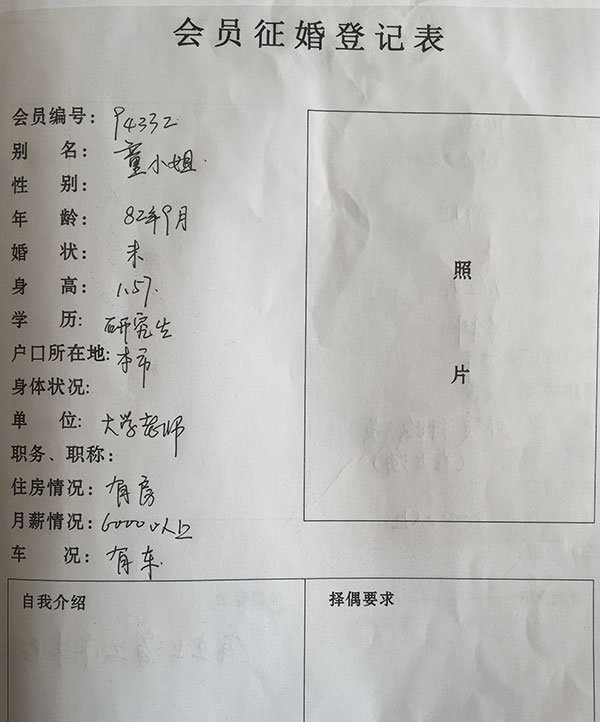 会员征婚登记表
会员编号：94332
别 名：童小姐
性 别：
年 龄：82年9月
婚 状：未
身 高：1.57.
学 历：研究生
户口所在地：本市
身体状况：
单 位：大学老师
职务、职称：
住房情况：有房
月薪情况：6000以上
车 况：有车
照
片
自我介绍
择偶要求